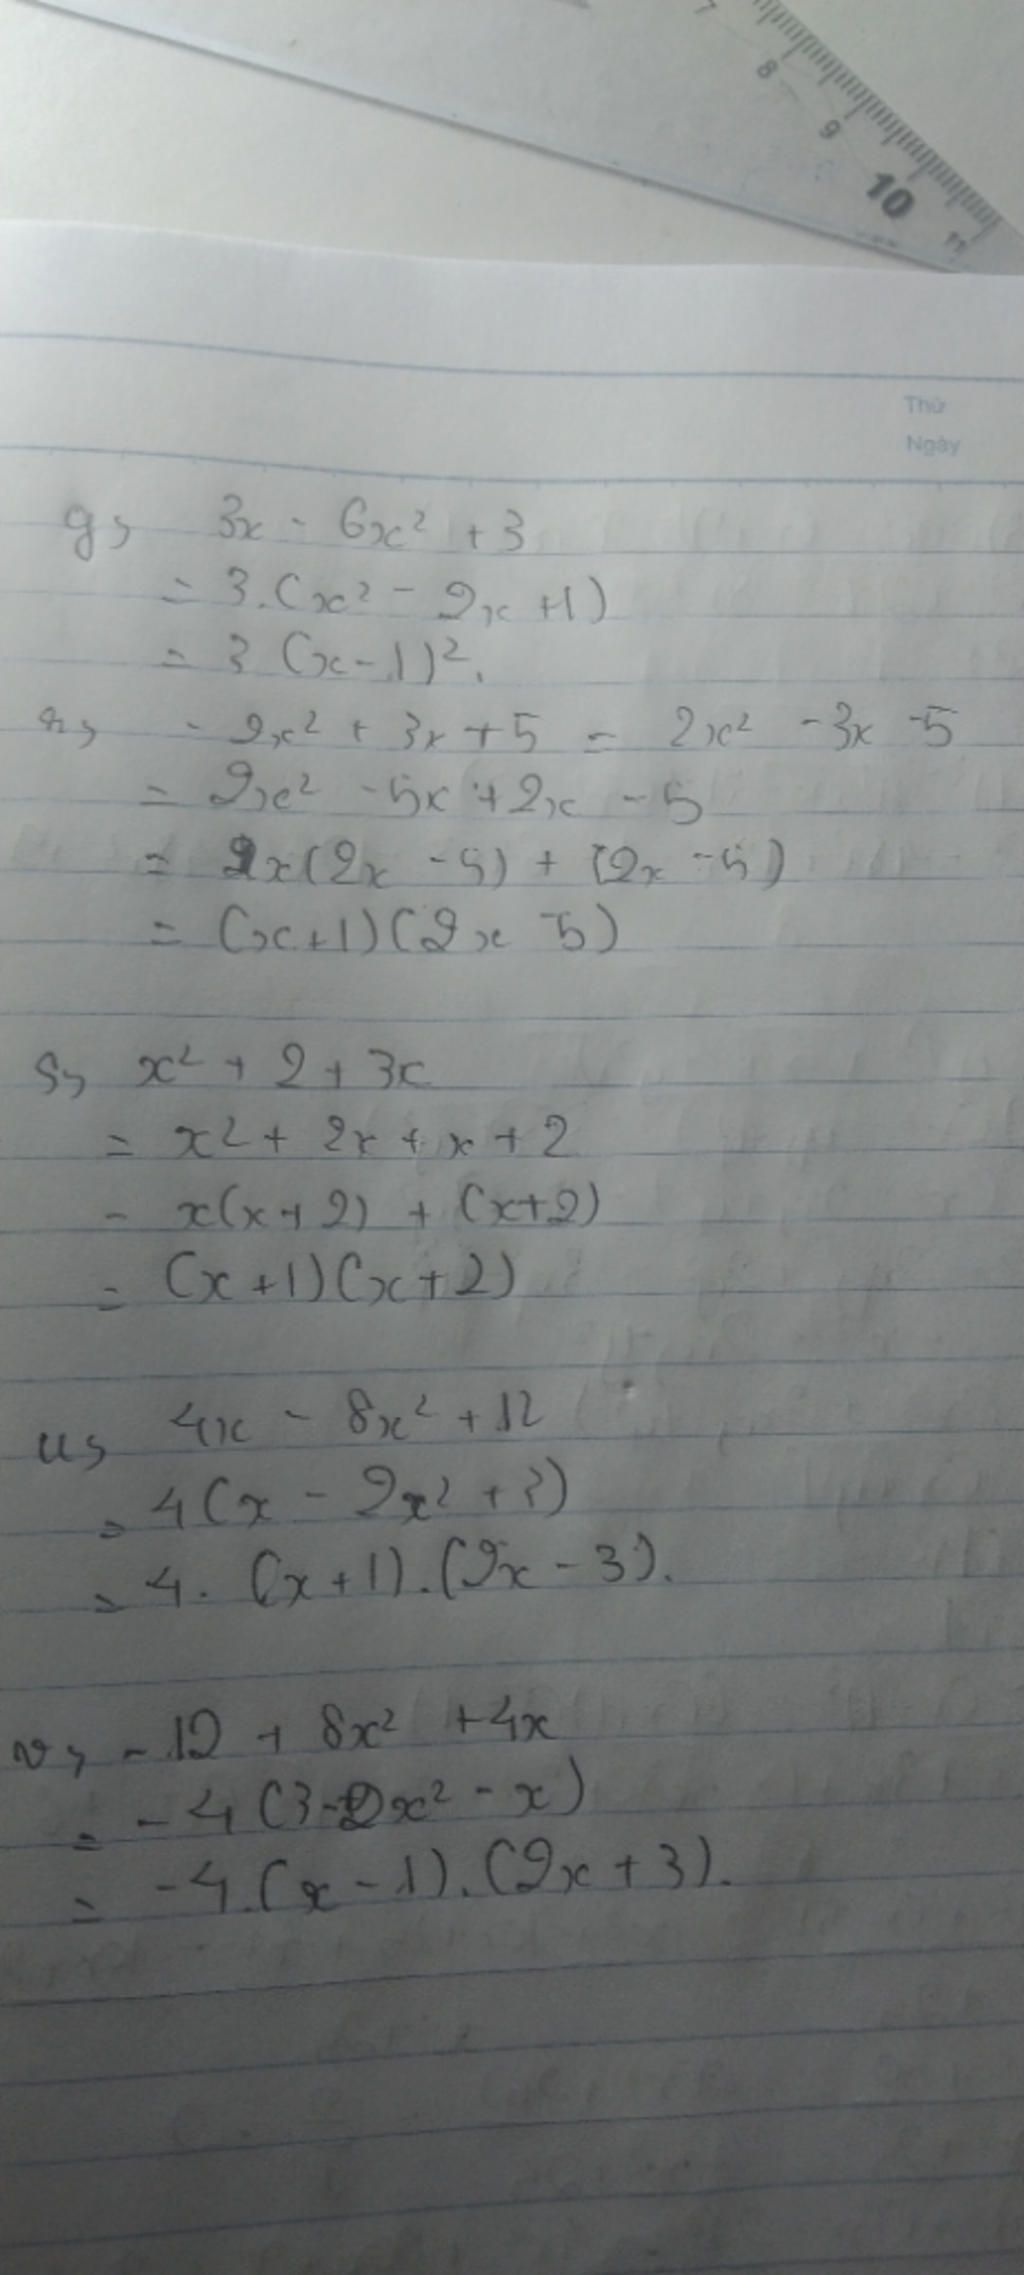 7
8
9
10
11
Thứ
Ngày
g, 3x - 6x² + 3
= 3.(x² - 2x +1)
= 3 (x-1)².
r, - 2x² + 3x + 5 = 2x² - 3x - 5
= 2x² - 5x + 2x - 5
= x(2x - 5) + (2x - 5)
= (x+1)(2x - 5)
S, x² + 2 + 3x
= x² + 2x + x + 2
= x(x + 2) + (x+2)
= (x+1)(x+2)
u, 4x - 8x² + 12
= 4(x - 2x² + 3)
= 4. (x+1).(2x - 3).
v, - 12 + 8x² + 4x
= - 4 (3-2x² - x)
= -4.(x - 1).(2x + 3).